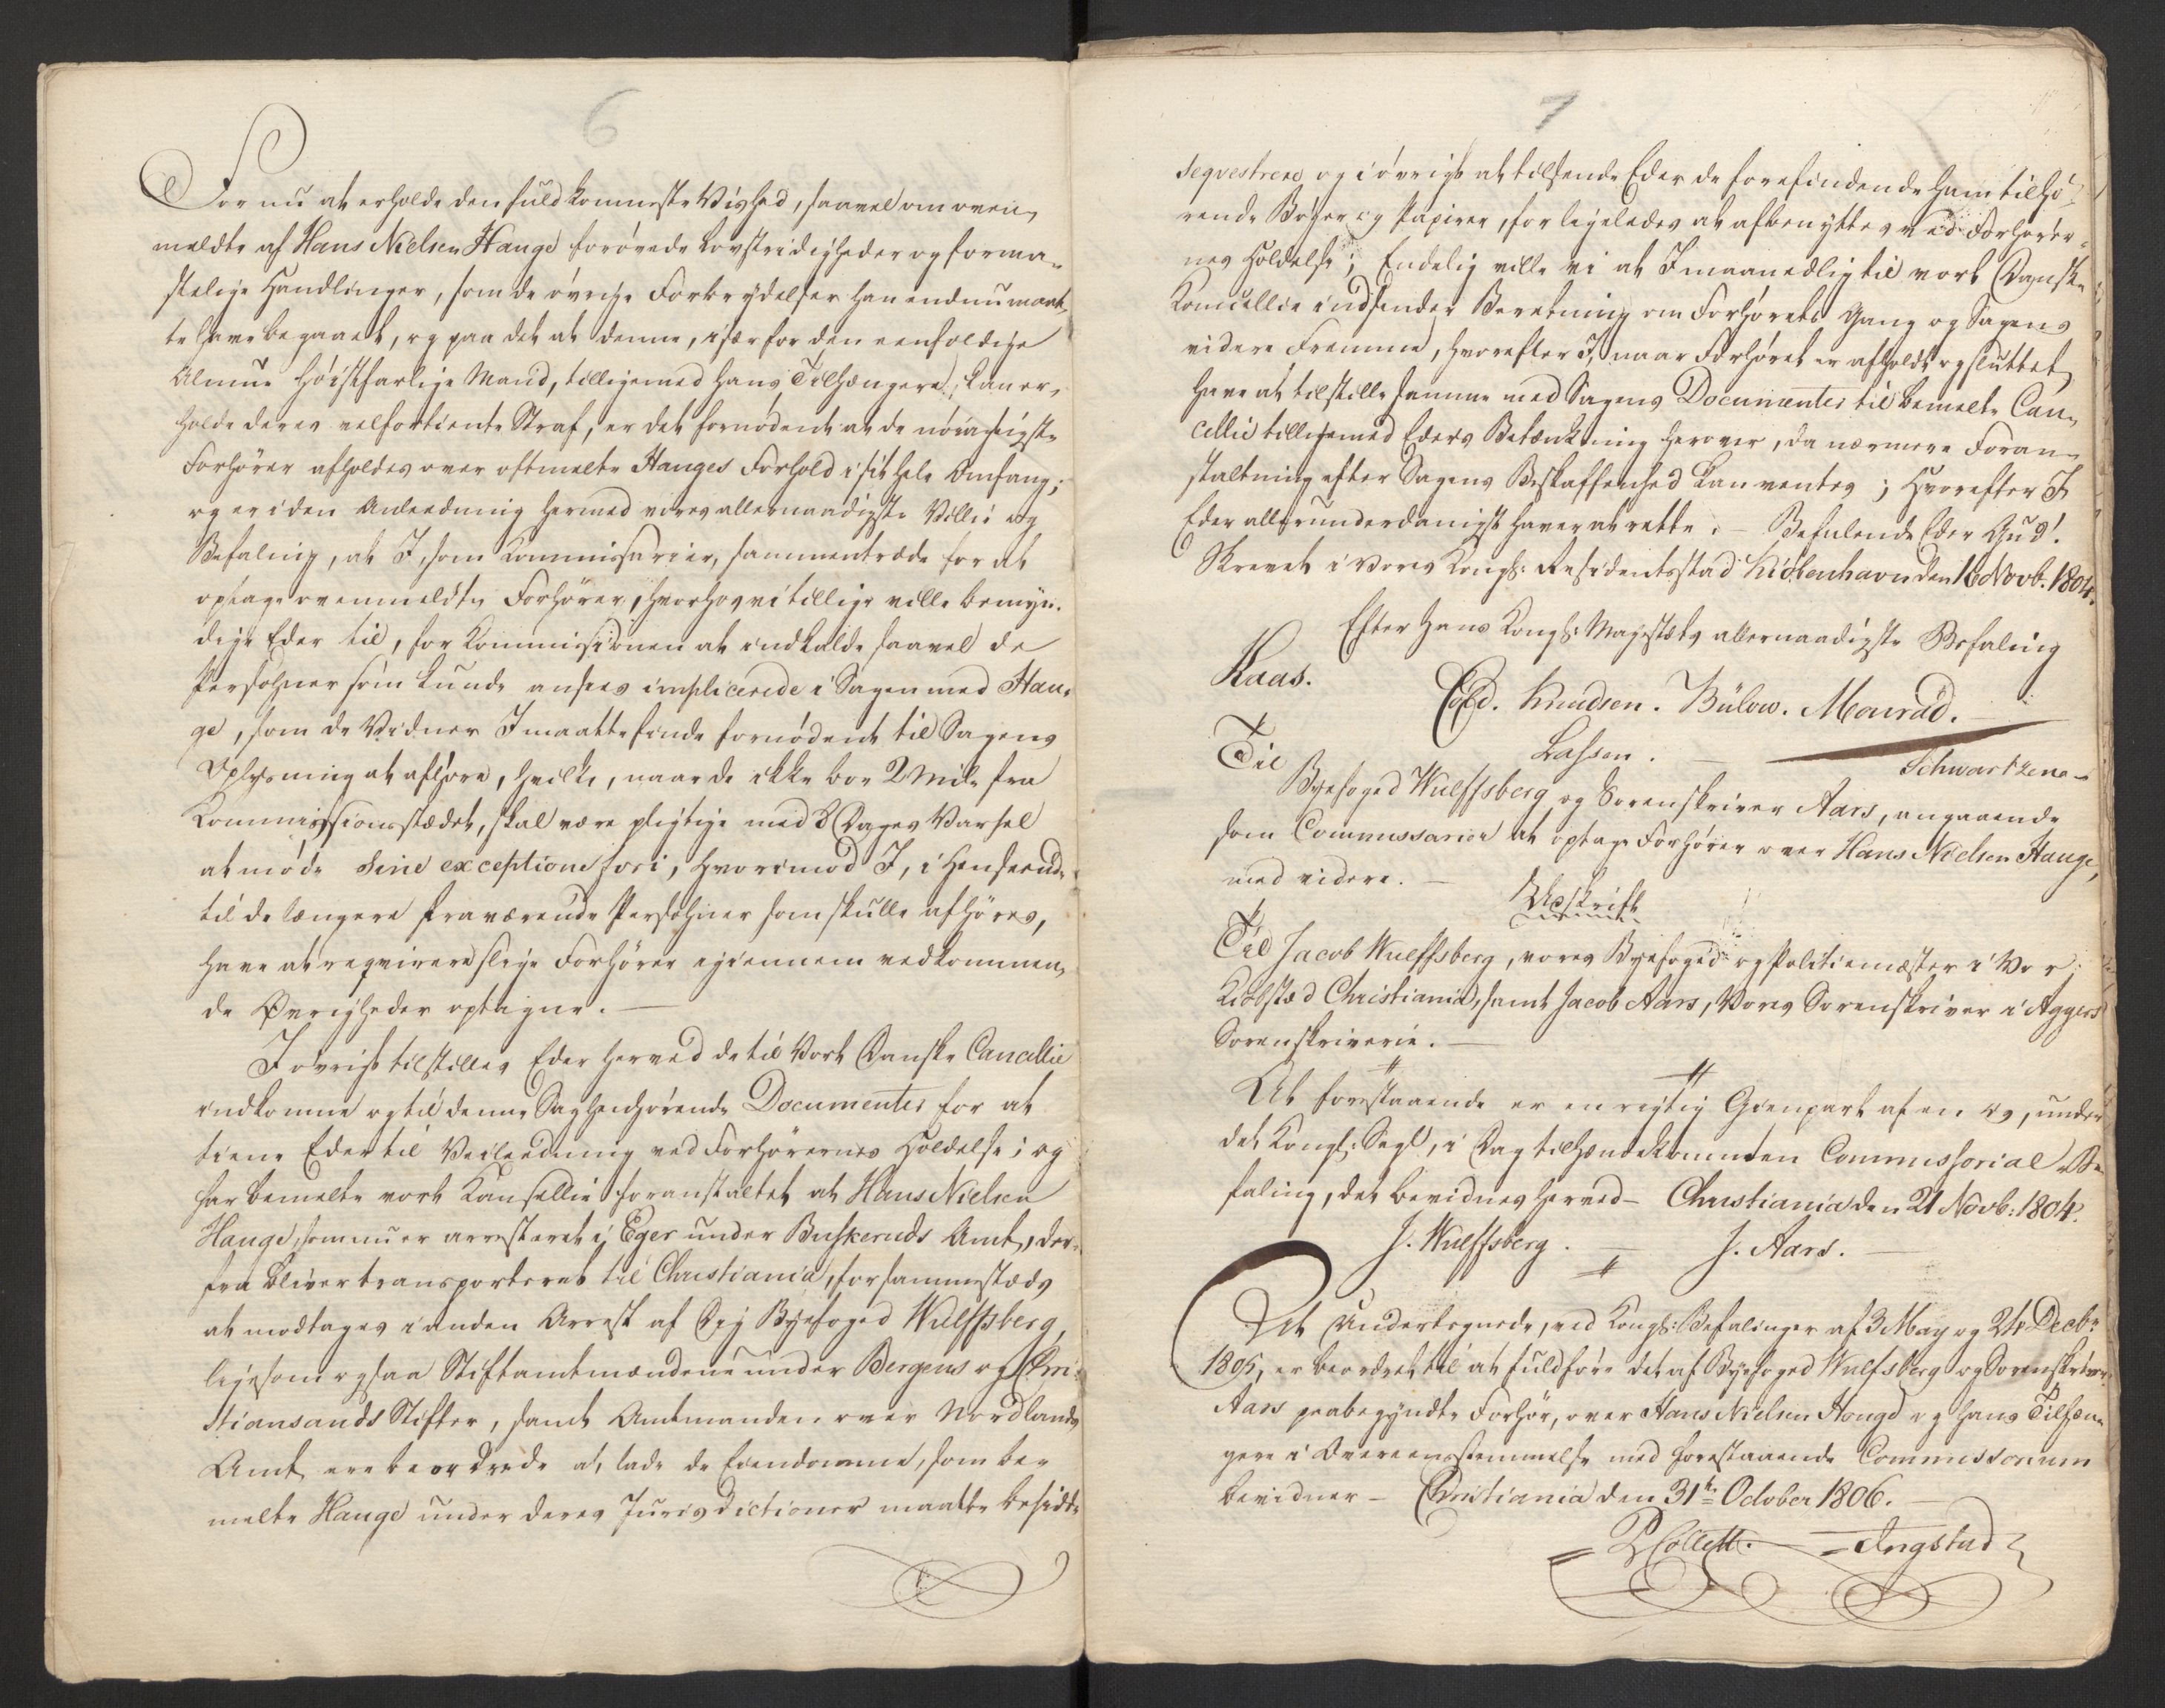 6
For nu at erholde den fuldkomneste Vished, saavel om oven,
meldte af Hans Nielsen Hauge forøvede Lovstridigheder og forma-
stelige Handlinger, som de øvrige Forbrydelser han endnu maat,
te have begaaet, og paa det at denne, især for den eenfoldige
Almue høistfarlige Mand, tilligemed hans Tilhængere, kan er,
holde deres velfortiente Straf, er det fornødent at de nöiagtigste
Forhörer afholdes over oftmeldte Hauges Forhold i sit hele Omfang;
og er i den Anleedning hermed vores allernaadigste Villie og
Befaling, at I, som Kommissarier, sammentræde for at
optage ovenmeldte Forhörer, hvorhos vi tillige ville bemyn-
dige Eder til, for Kommissionen at indkalde saavel de
Persohner som kunde ansees implicerede i Sagen med Hau-
ge, som de Vidner I maatte finde fornödent til Sagens
Oplysning at afhöre, hvilke, naar de ikke boe 2 Mile fra
Kommissionsstædet, skal være pligtige med 8 Dages Varsel
at møde sine exceptione fori, hvorimod I, i Henseende
til de længere fraværende Persohner som skulle afhöres,
have at reqvirere slige Forhörer igiennem vedkommen,
de Øvrigheder optagne. —
I øvrigt tilstilles Eder herved de til Vort Danske Cancellie
indkomne og til denne Sag henhørende Documenter for at
tiene Eder til Veileedning ved Forhörernes Holdelse; og
har bemelte vort Kansellie foranstaltet at Hans Nielsen
Hauge, som nu er arresteret i Eger under Buskeruds Amt, der-
fra bliver transporteret til Christiania, for sammestæds
at modtages i anden Arrest af Dig Byefoged Wulffsberg,
ligesom ogsaa Stiftamtmændene under Bergens og Chri-
stiansands Stifter, samt Amtmanden over Nordlands
Amt ere beordrede at, lade de Eiendomme, som be-
melte Hauge under deres Jurisdictioner maatte besidde
7
seqvestrere og i øvrigt at tilsende Eder de forefindende ham tilhö-
rende Bøger og Papirer, for ligeledes at afbenyttes ved Forhörer-
nes Holdelse; Endelig ville vi at I maanedlig til vort Danske
Kancellie indsender Beretning om Forhørets Gang og Sagens
videre Fremme, hvorefter I, naar Forhöret er afholdt og sluttet,
have at tilstille samme med Sagens Documenter til bemelte Can-
cellie tilligemed Eders Betænkning herover, da nærmere Foran-
staltning efter Sagens Beskaffenhed kan ventes; Hvorefter I
Eder allerunderdanigst haver at rette. — Befalende Eder Gud!
Skrevet i Vores Kongl: Residentsstad Kiöbenhavn den 16 Novb: 1804.
Efter Hans Kongl: Majestæts allernaadigste Befaling
Kaas.
Cold. Knudsen. Bülow. Monrad.
Lassen. —
Schwartzene-
Til
Byefoged Wulffsberg og Sorenskriver Aars, angaaende
som Commissarier at optage Forhörer over Hans Nielsen Hauge,
med videre. —
Udskrift
Til Jacob Wulffsberg, vores Byefoged og Politiemester i Vor
Kiöbstæd Christiania, samt Jacob Aars, Vores Sorenskriver i Aggers
Sorenskriverie. —
At forestaaende er en rigtig Gienpart af en os, under
det Kongl: Segl, i Dag tilhændekommen Commissorial Be-
faling, det bevidnes herved — Christiania den 21 Novb: 1804.
J. Wulffsberg. — J. Aars. —
At Undertegnede, ved Kongl: Befalinger af 3 May og 24 Decbr
1805, er beordret til at fuldføre det af Byefoged Wulfsberg og Sorenskriver
Aars paabegyndte Forhör, over Hans Nielsen Hauge og hans Tilhæn-
gere i Overeensstemmelse med forestaaende Commissorium
bevidner — Christiania den 31te October 1806. —
Collett. — Ingstad